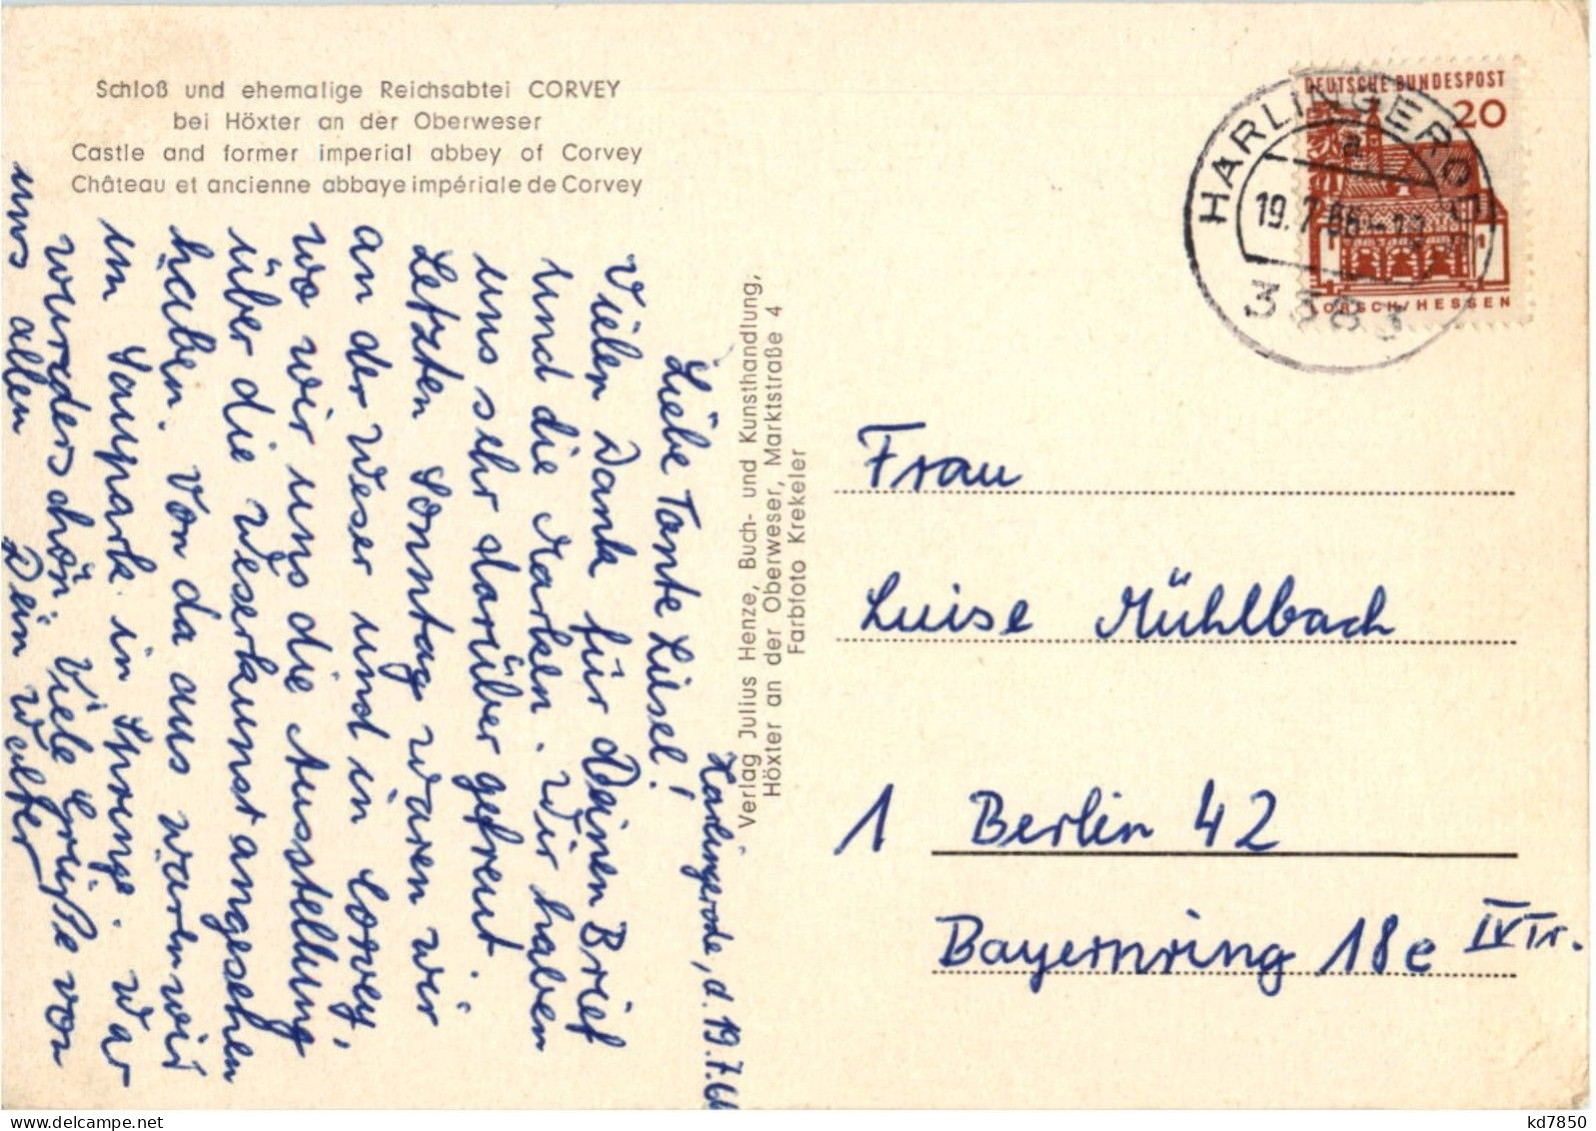 Schloß und ehemalige Reichsabtei CORVEY
bei Höxter an der Oberweser
Castle and former imperial abbey of Corvey
Château et ancienne abbaye impériale de Corvey
Harlingerode, d. 19.7.66
Liebe Tante Lusel!
Vielen Dank für Deinen Brief
und die Marken. Wir haben
uns sehr darüber gefreut.
Letzten Sonntag waren wir
an der Weser und in Corvey,
wo wir uns die Ausstellung
über die Weserkunst angesehen
haben. Von da aus waren wir
im Saupark in Springe. War
wunderschön. Viele Grüße von
uns allen Dein Walter
Verlag Julius Henze, Buch- und Kunsthandlung,
Höxter an der Oberweser, Marktstraße 4
Farbfoto Krekeler
DEUTSCHE BUNDESPOST
20
LORSCH/HESSEN
HARLINGERODE
a
19.7.66-18
3383
Frau
Luise Mühlbach
1 Berlin 42
Bayernring 18e IV Tr.
kd7850